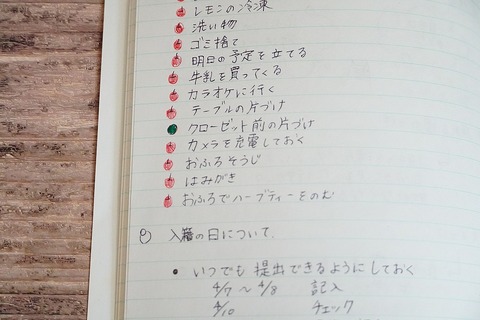 レモンの冷凍
洗い物
ゴミ捨て
明日の予定を立てる
牛乳を買ってくる
カラオケに行く
テーブルの片づけ
クローゼット前の片づけ
カメラを充電しておく
おふろそうじ
はみがき
おふろでハーブティーをのむ
入籍の日について.
• いつでも提出できるようにしておく
4/7 〜 4/8 記入
4/10 チェック